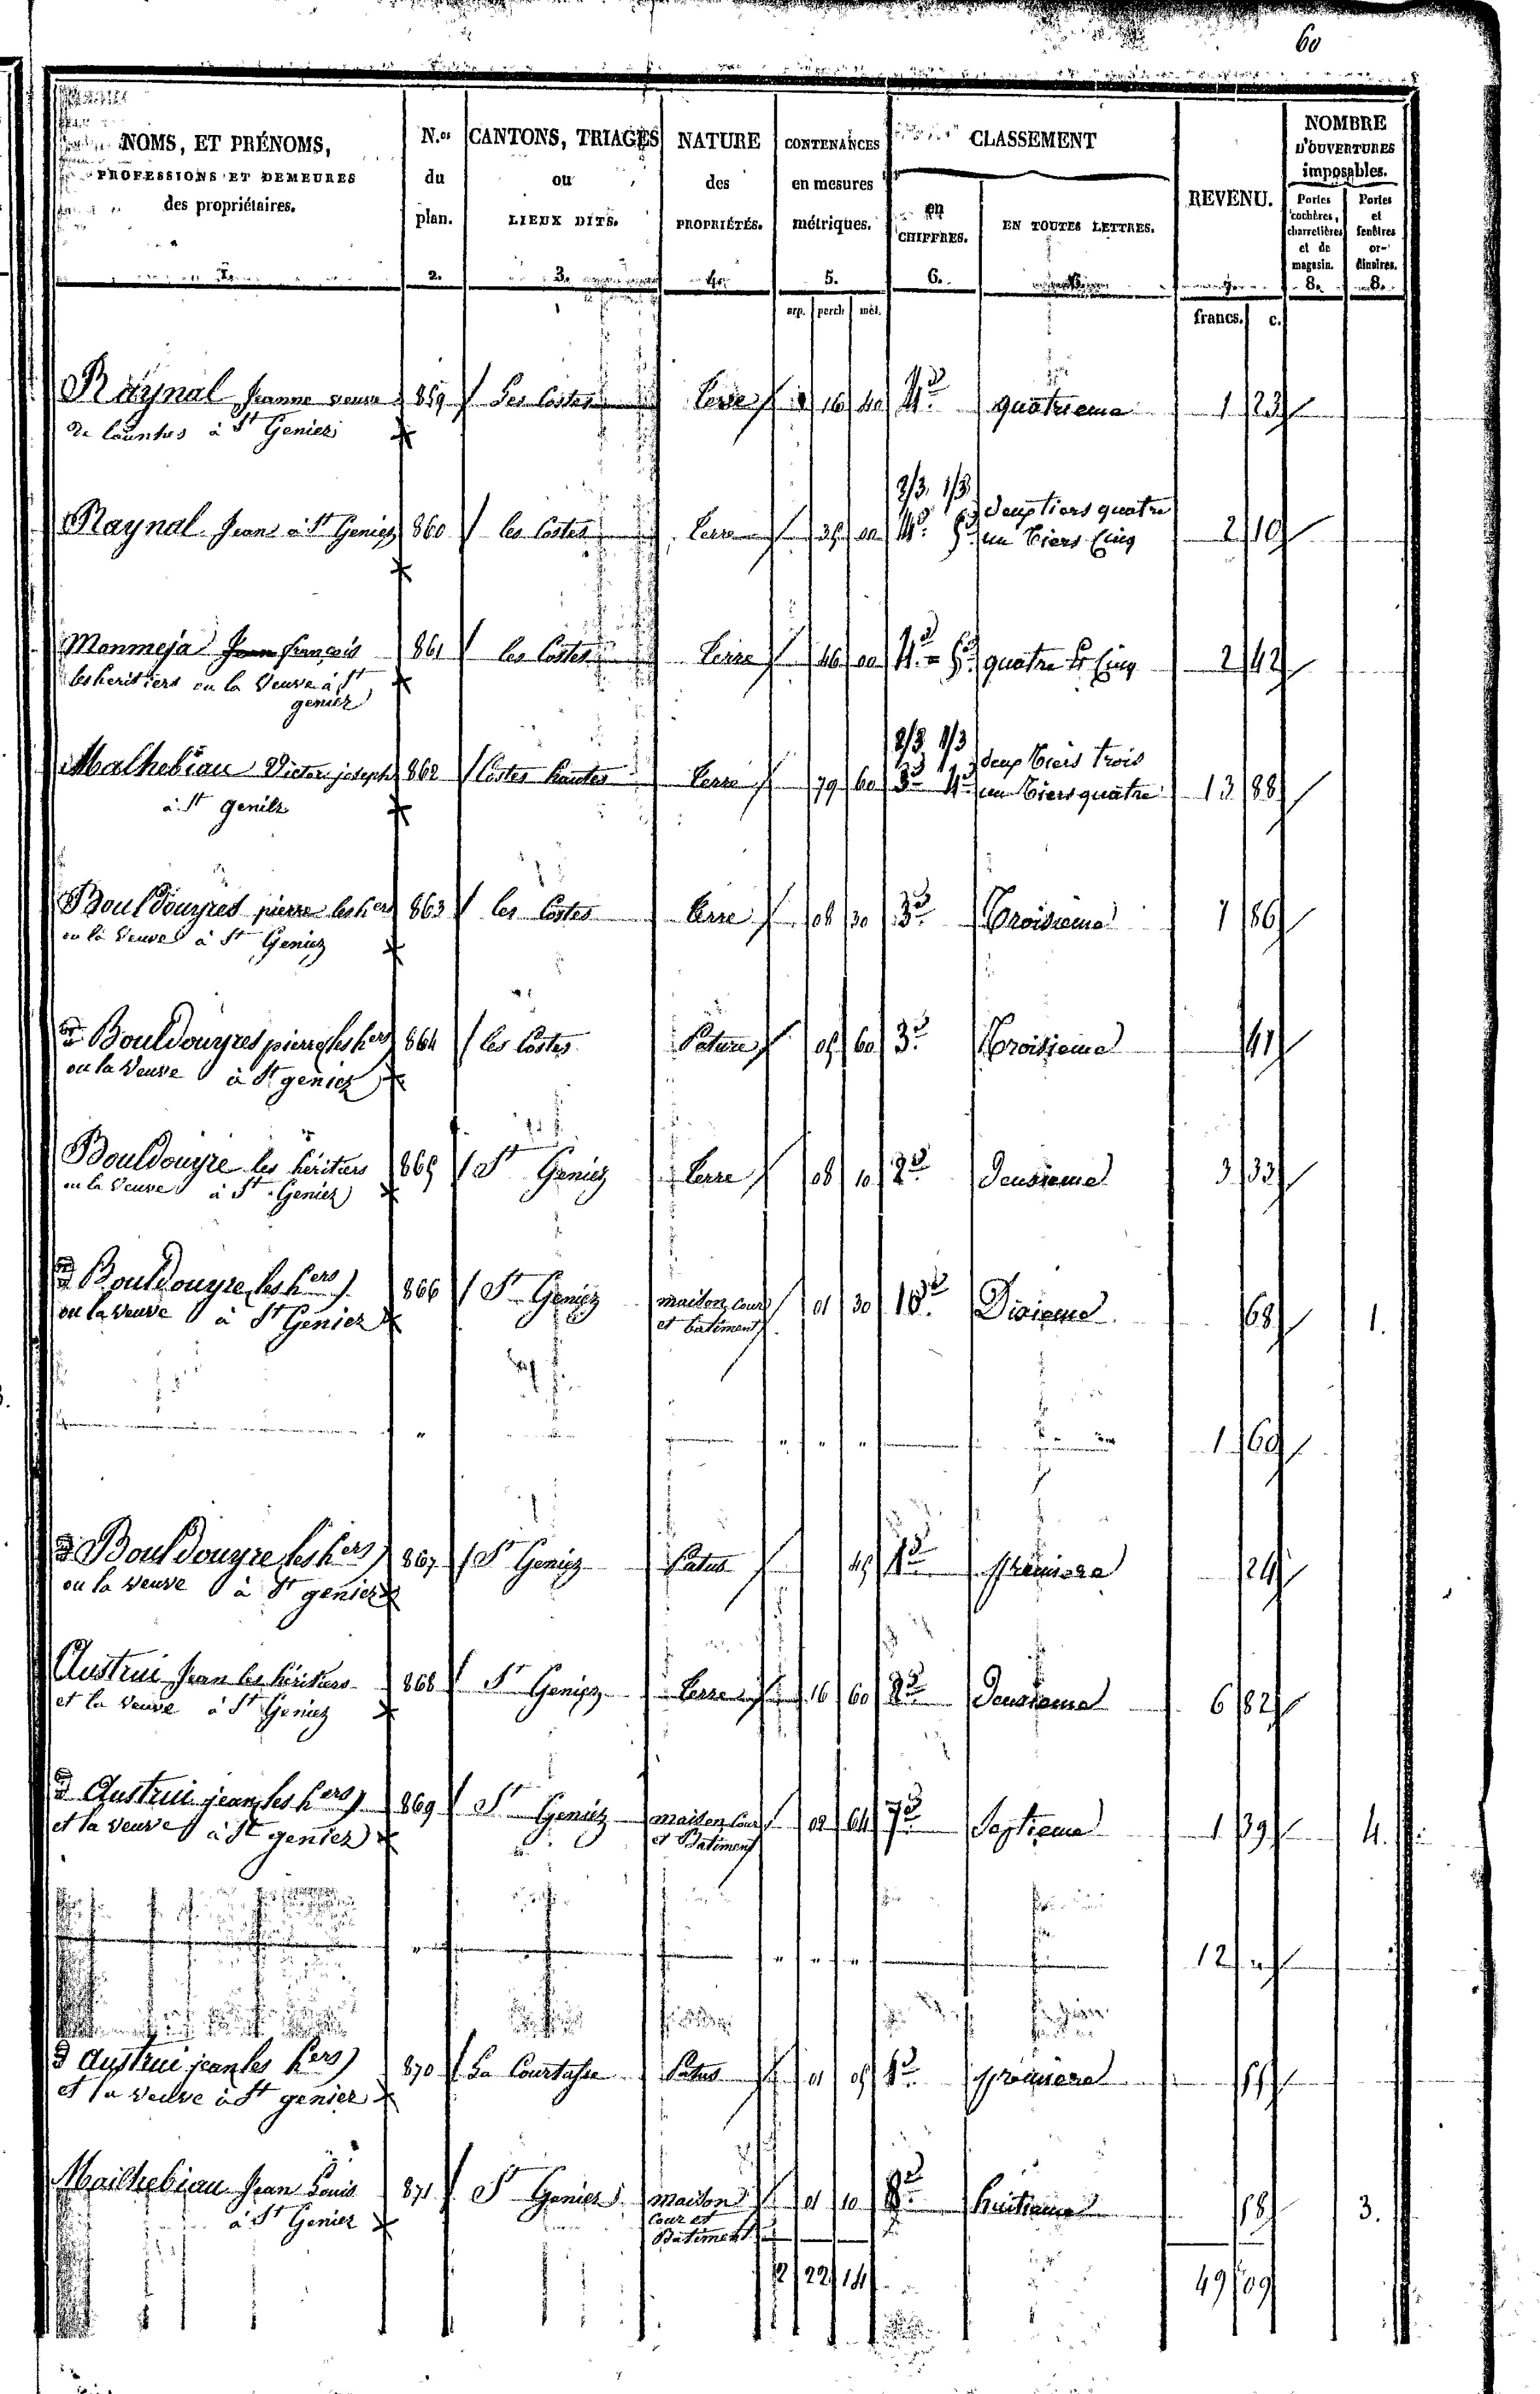 60
NOMS, ET PRÉNOMS,
PROFESSIONS ET DEMEURES
des propriétaires.
1.
N.os
du
plan.
2.
CANTONS, TRIAGES
ou
LIEUX DITS.
3.
NATURE
des
PROPRIÉTÉS.
4.
CONTENANCES
en mesures
métriques.
5.
arp. perch. mèt.
CLASSEMENT
en
CHIFFRES.
6.
EN TOUTES LETTRES.
REVENU.
7.
francs. c.
NOMBRE
D'OUVERTURES
imposables.
Portes
cochères,
charretières
et de
magasin.
8.
Portes
et
fenêtres
or-
dinaires.
8.
Raynal Jeanne veuve 859 Les Costes Terre 16 40 4e quatrieme 1 23
de à St Geniez
2/3 1/3 deux tiers quatre
Raynal Jean à St Geniez 860 les Costes Terre 35 00 4e 5e un tiers Cinq 2 10
Monmeja françois 861 les Costes Terre 46 00 4e = 5e quatre Et Cinq 2 42
les heritiers ou la Veuve à St
geniez
2/3 1/3 deux tiers trois
Malhebiau Victor joseph 862 Costes hautes Terre 79 60 3e 4e un tiers quatre 13 88
à St geniez
Bouldouyres pierre les hers 863 les Costes Terre 08 30 3e Troisieme 1 86
ou la Veuve à St Geniez
d Bouldouyres pierre les hers 864 les Costes Pature 05 60 3e Troisieme 41
ou la Veuve à St geniez
Bouldouyre les héritiers 865 St Geniez Terre 08 10 2e Deuxieme 3 33
ou la Veuve à St Geniez
d Bouldouyre les hers 866 St Geniez maison, Cour 01 30 10e Dixieme 68 1.
ou la Veuve à St Geniez et batiment
" " " " 1 60
d Bouldouyre les hers 867 St Geniez Patus 45 1e premiere 24
ou la Veuve à St geniez
Austrui Jean les héritiers 868 St Geniez Terre 16 60 2e Deuxieme 6 82
et la Veuve à St Geniez
d Austrui jean les hers 869 St Geniez maison, Cour 02 64 7e Septieme 1 39 4.
et la veuve à St geniez et Batiment
" " " " 12 "
d Austrui jean les hers 870 La Courtasse Patus 01 05 1e premiere 55
et la veuve à St geniez
Mailhebiau Jean Louis 871 St Geniez maison 01 10 8e huitieme 58 3.
à St Geniez Cour et
Batiment
2 22 14 49 09